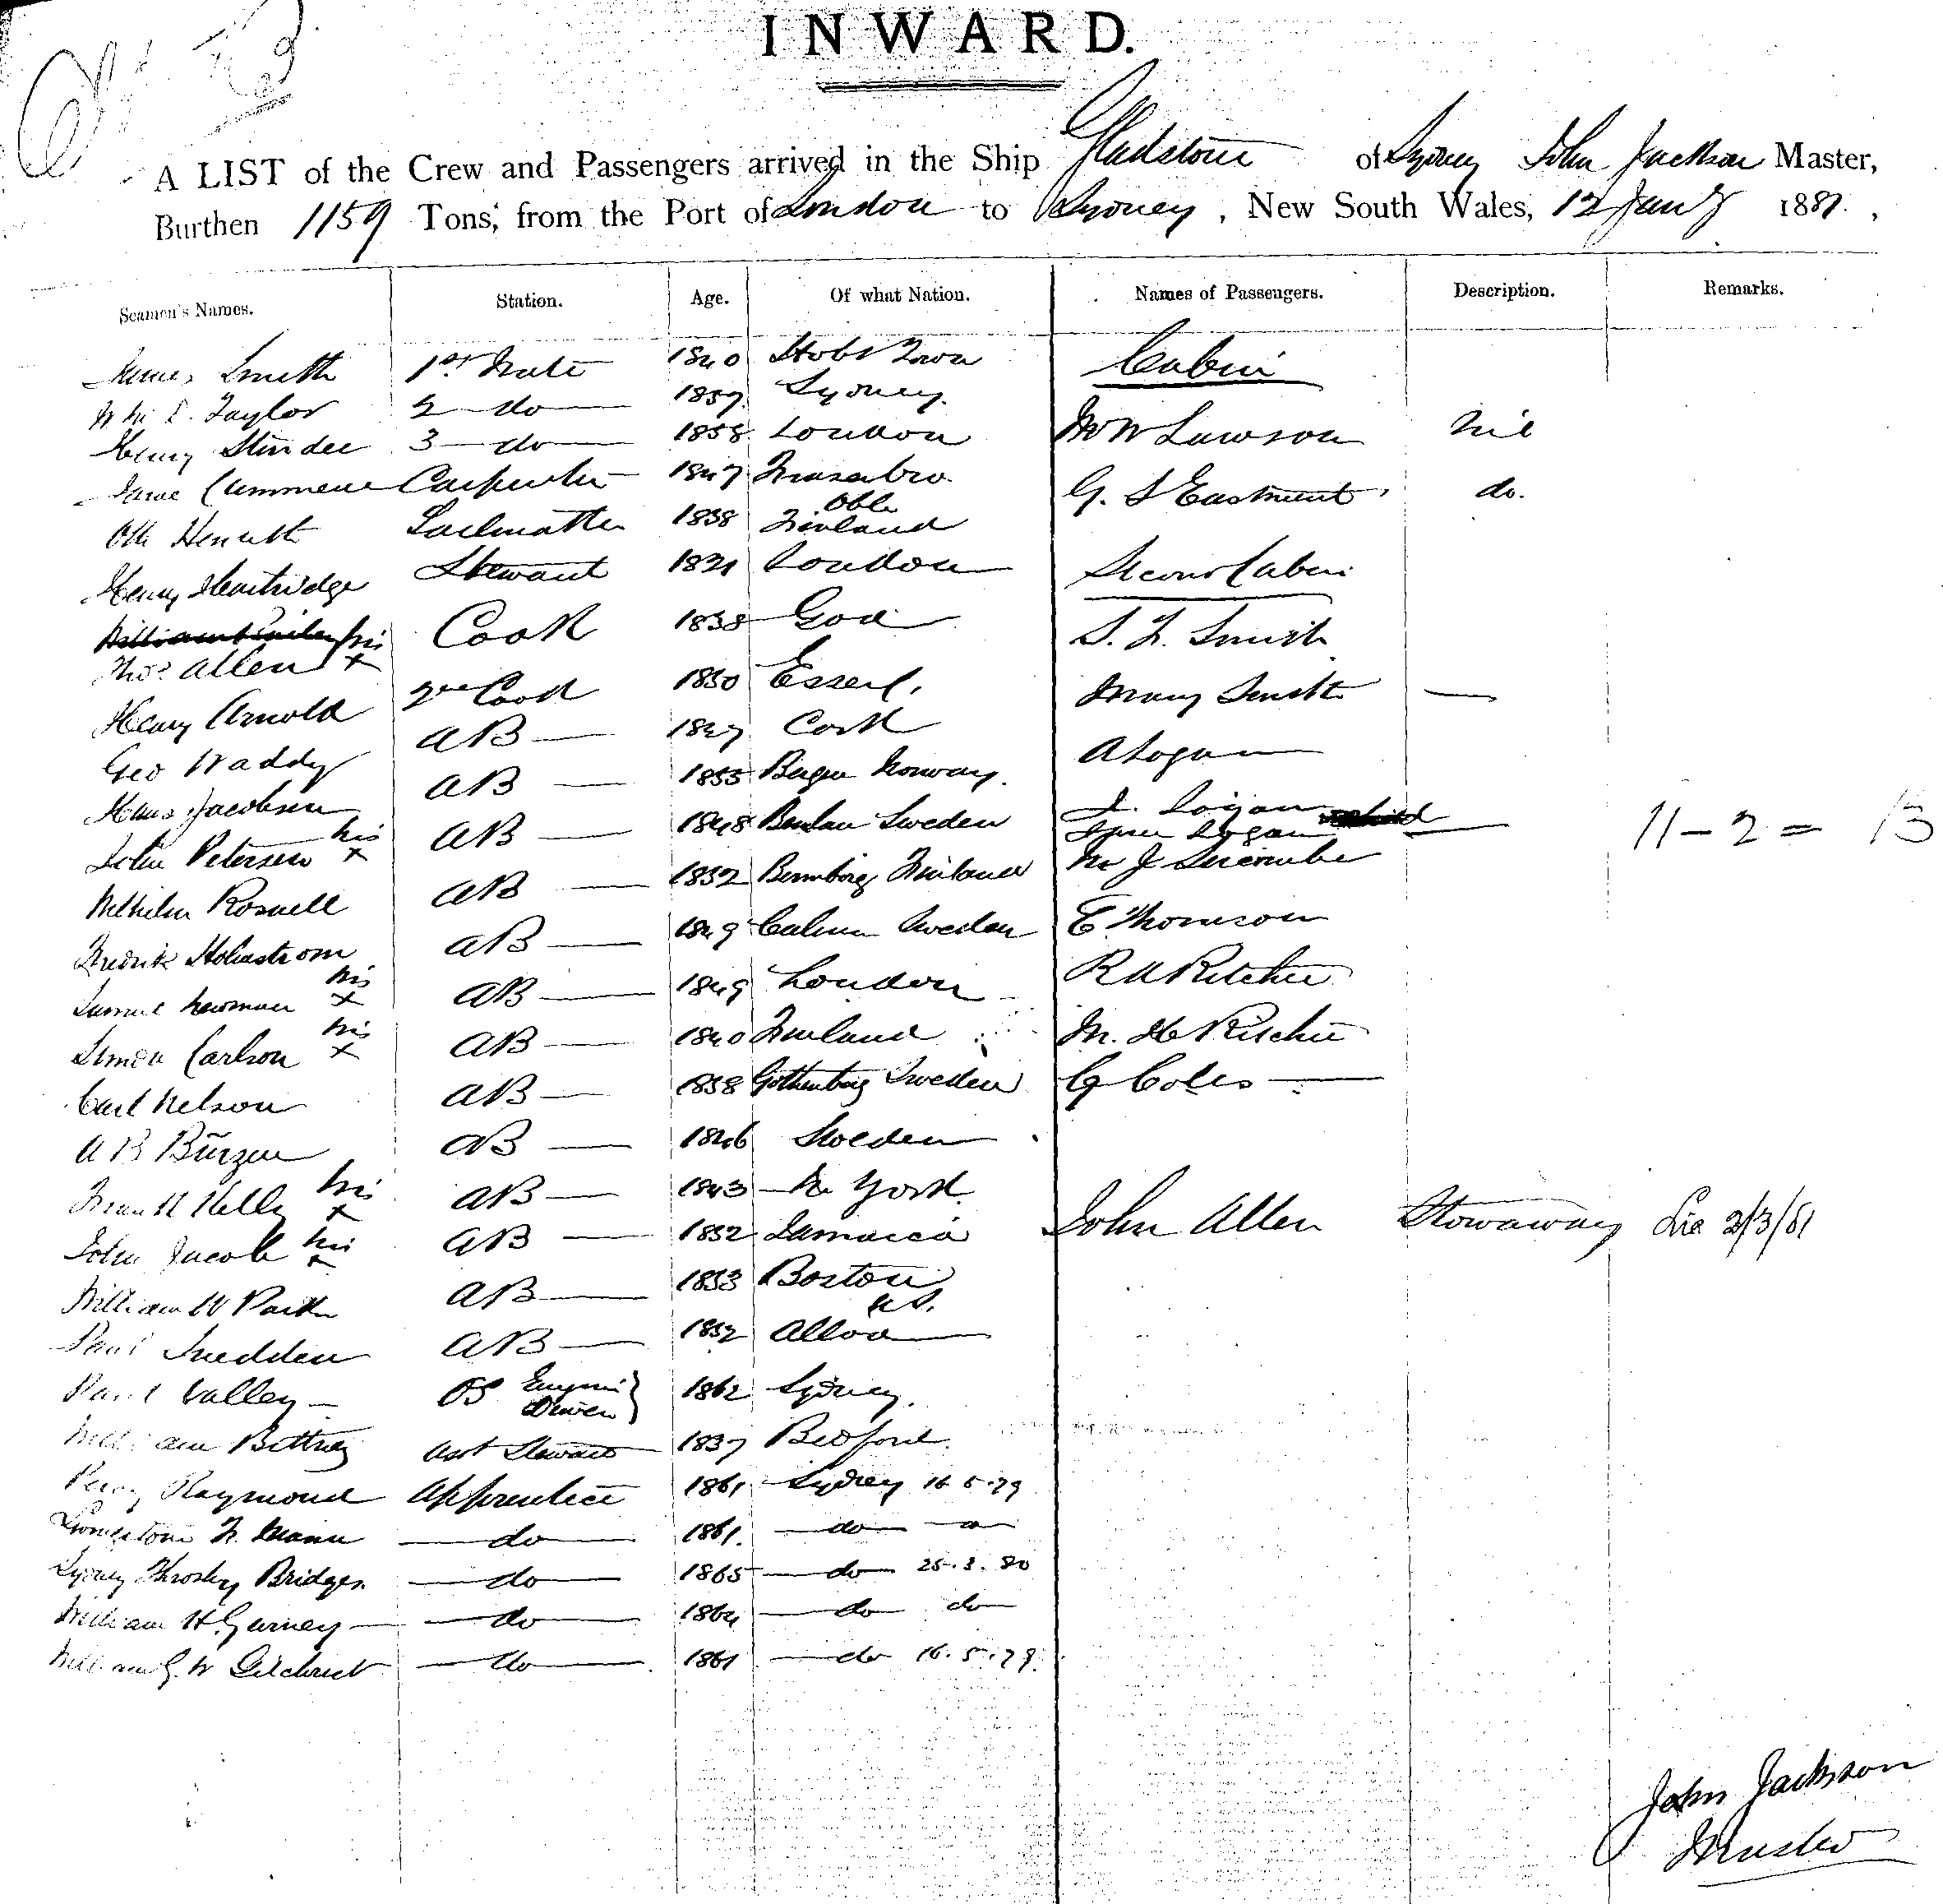 INWARD.
A LIST of the Crew and Passengers arrived in the Ship Gladstone of Sydney John Jackson Master,
Burthen 1159 Tons, from the Port of London to Sydney, New South Wales, 12 Jany 1881.,
Seamen's Names. Station. Age. Of what Nation. Names of Passengers. Description. Remarks.
James Smith 1st Mate 1840 Hobt Town Cabin
Wm Taylor 2 do 1859 Sydney
Henry 3 do 1858 London Mr W Lawson Nil
Carpenter 1847 G. S Eastment do.
Otto Sailmaker 1838 Finland
Henry Hartridge Steward 1821 London Second Cabin
his
Thos Allen x Cook 1838 Goa S. F. Smith
Henry Arnold 2nd Cook 1850 Essex Mary Smith —
Geo Waddy AB 1827 Cork A Logan
Hans Jacobsen AB 1855 Bergen Norway J. Logan
John Petersen his x AB 1848 Sweden Logan
Wilhelm Rosnell AB 1852 Finland Mr J Luscombe 11 - 2 = 13
Fredrik Holmstrom AB 1849 Sweden E Thomson
Samuel Newman his x AB 1849 London R A Ritchie
Simon Carlson his x AB 1840 Finland M. Ritchie
Carl Nelson AB 1858 Gothenburg Sweden G Coles
A B AB 1846 Sweden
Frank Kelly his x AB 1843 N York
John Jacob his x AB 1852 Jamaica John Allen Stowaway 2/3/81
William W Park AB 1853 Boston U S.
Snedden AB 1852 Alloa
Valley OS Engine Driver 1862 Sydney.
William Bettney Asst Steward 1837 Bedford
Percy Raymond Apprentice 1861 Sydney 16.5.79
F. Mann do 1861. do do
Sydney Throsby Bridges do 1865 do 25.3.80
William H Gurney do 1864 do do
William G. W Gilchrist do 1861 do 16.5.79.
John Jackson
Master